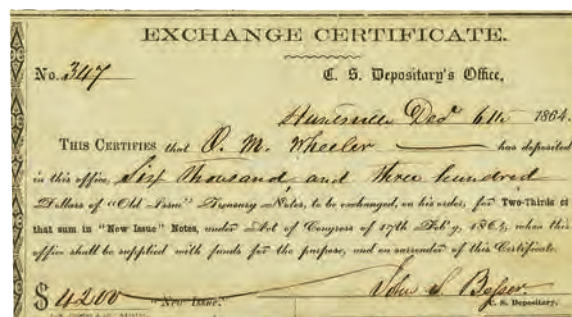 EXCHANGE CERTIFICATE.
No. 347 C. S. Depositary's Office,
Huntsville Decr 6th 1864.
THIS CERTIFIES that O. M. Wheeler has deposited
in this office, Six thousand and three hundred
Dollars of "Old Issue" Treasury Notes, to be exchanged, on his order, for Two-Thirds of
that sum in "New Issue" Notes, under Act of Congress of 17th Feb'y, 1864, when this
office shall be supplied with funds for the purpose, and on surrender of this Certificate.
$4200 "New Issue." John S. Besser.
C. S. Depositary.